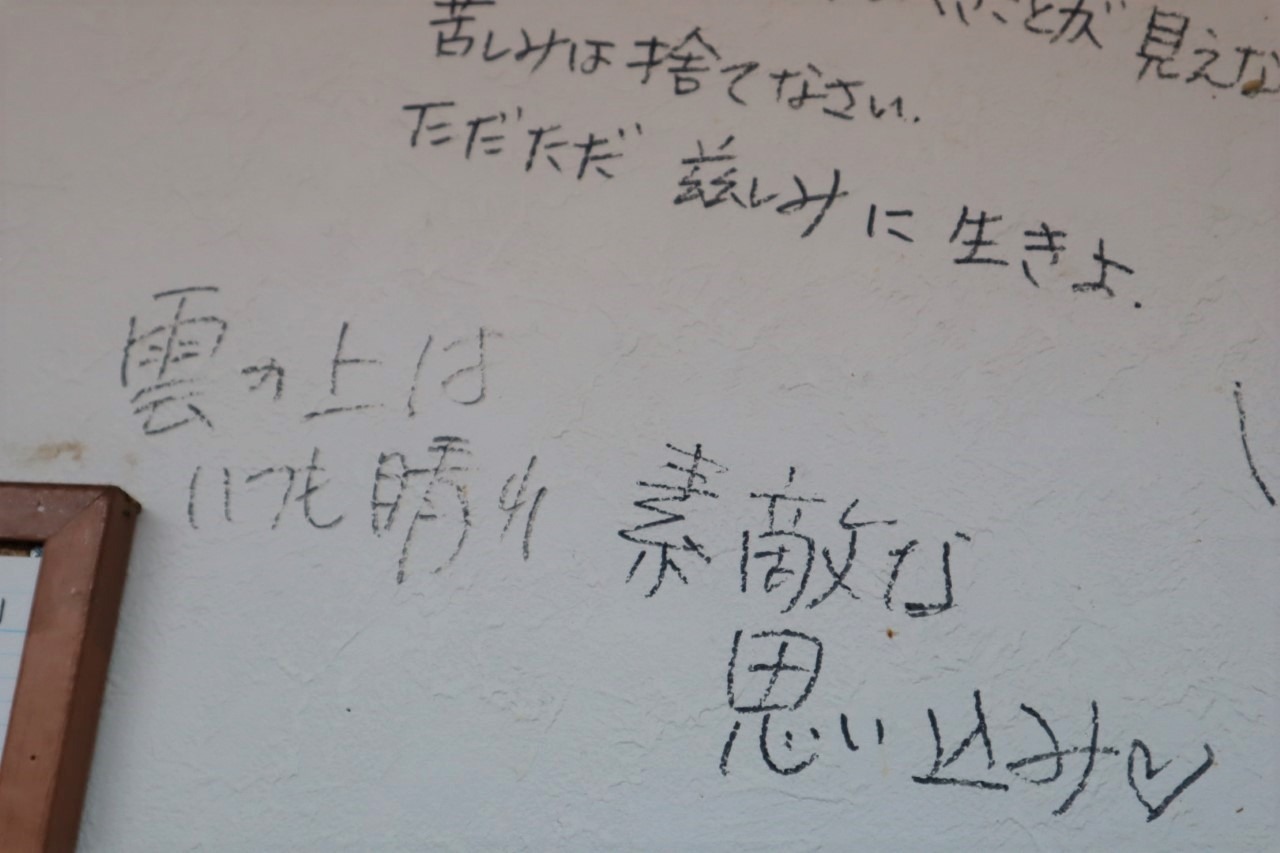 ことが 見えな
苦しみは捨てなさい.
ただただ 茲しみに生きよ.
雲の上は
いつも晴れ
素敵な
思い込み♡